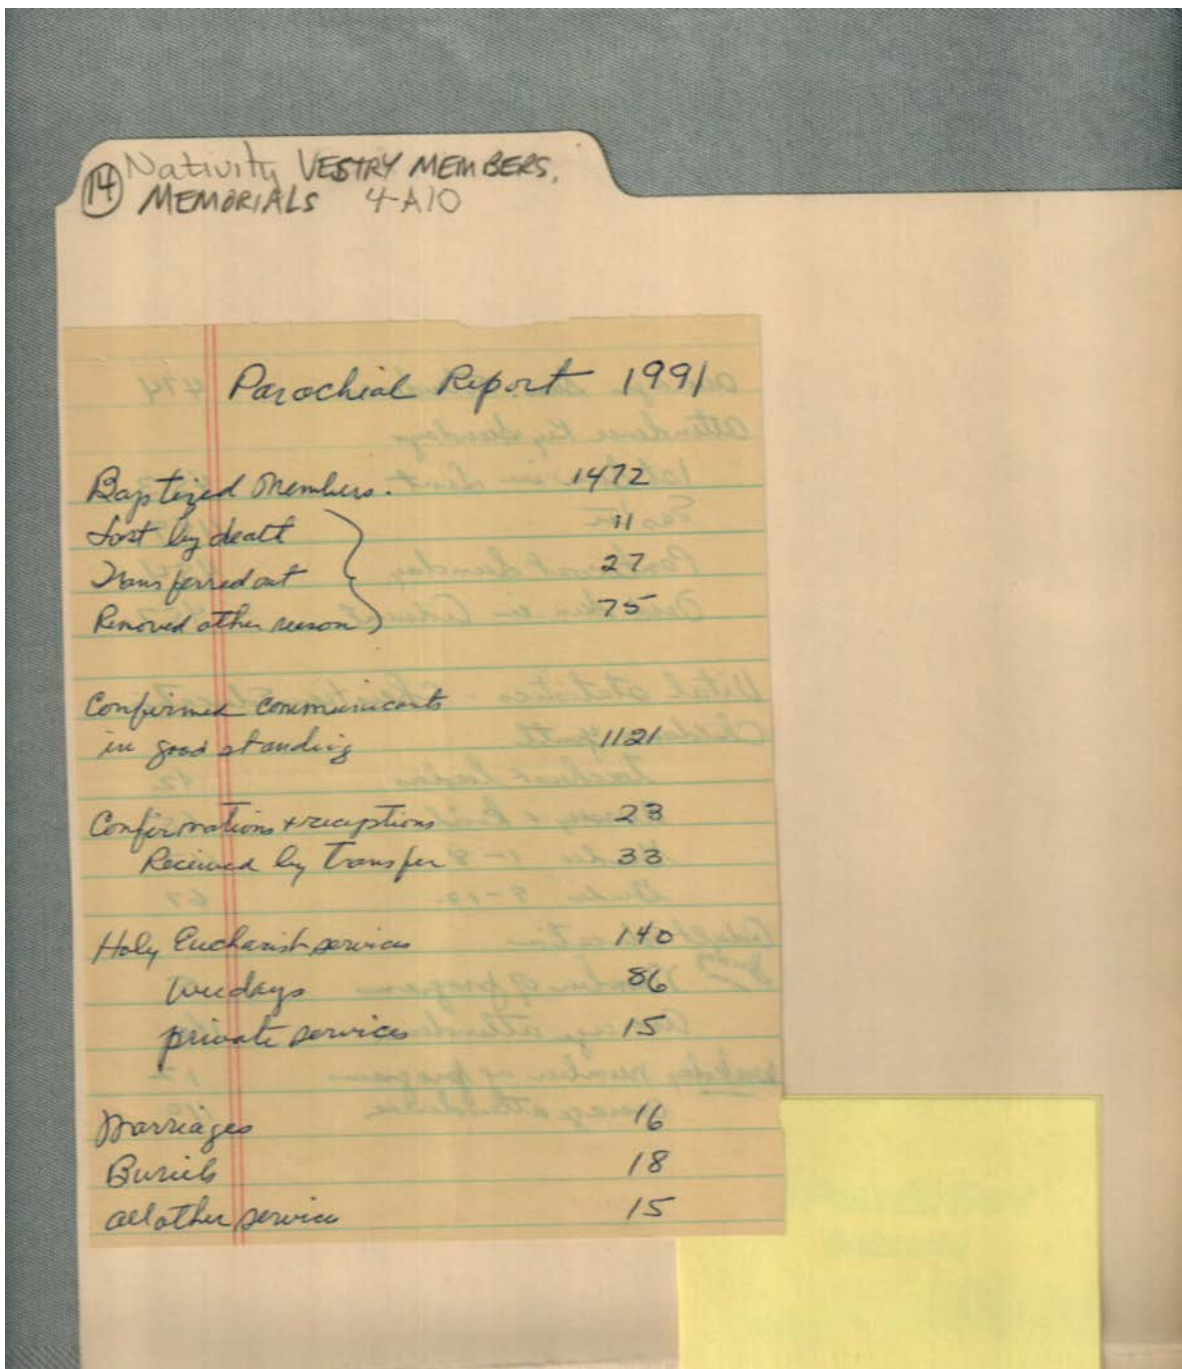 14 Nativity VESTRY MEMBERS,
MEMORIALS 4-A10
Parochial Report 1991
Baptized Members. 1472
Lost by death 11
Transferred out 27
Removed other reason 75
Confirmed communicants
in good standing 1121
Confirmations + receptions 23
Received by Transfer 33
Holy Eucharist services 140
Weedays 86
private services 15
Marriages 16
Burials 18
all other service 15